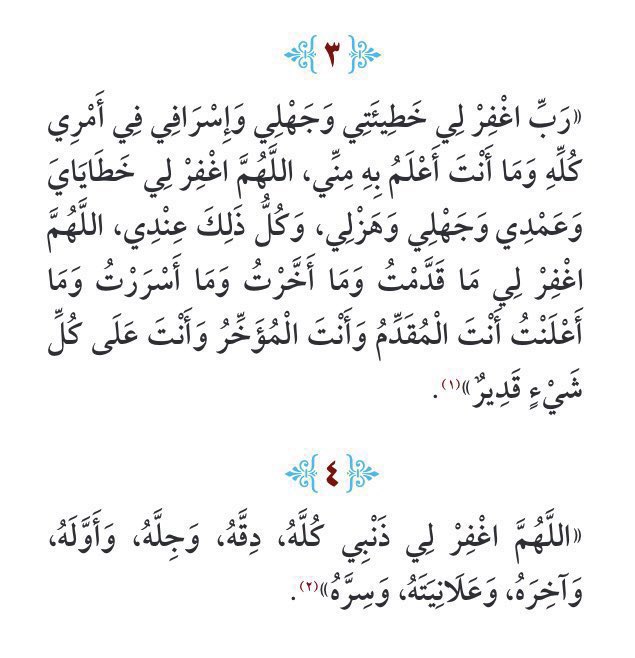 ٣
«رَبِّ اغْفِرْ لِي خَطِيئَتِي وَجَهْلِي وَإِسْرَافِي فِي أَمْرِي
كُلِّهِ وَمَا أَنْتَ أَعْلَمُ بِهِ مِنِّي، اللَّهُمَّ اغْفِرْ لِي خَطَايَايَ
وَعَمْدِي وَجَهْلِي وَهَزْلِي، وَكُلُّ ذَلِكَ عِنْدِي، اللَّهُمَّ
اغْفِرْ لِي مَا قَدَّمْتُ وَمَا أَخَّرْتُ وَمَا أَسْرَرْتُ وَمَا
أَعْلَنْتُ أَنْتَ الْمُقَدِّمُ وَأَنْتَ الْمُؤَخِّرُ وَأَنْتَ عَلَى كُلِّ
شَيْءٍ قَدِيرٌ»(١).
٤
«اللَّهُمَّ اغْفِرْ لِي ذَنْبِي كُلَّهُ، دِقَّهُ، وَجِلَّهُ، وَأَوَّلَهُ،
وَآخِرَهُ، وَعَلَانِيَتَهُ، وَسِرَّهُ»(٢).